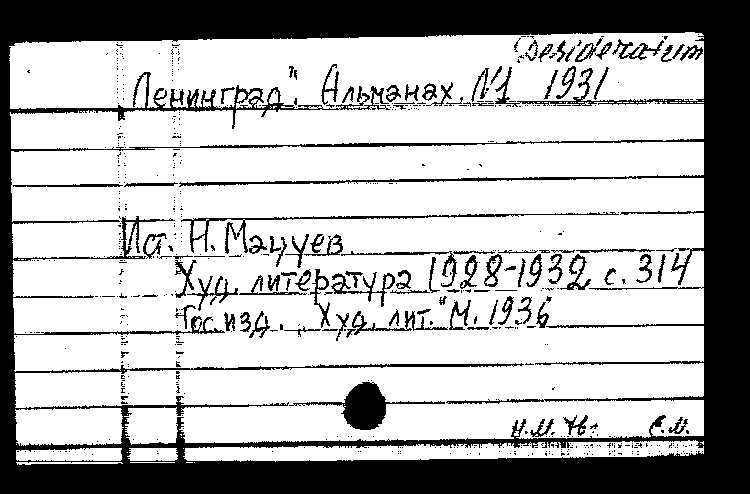 Desideratum
Ленинград". Альманах. N1 1931
Ист. Н. Мацуев.
Худ. литература 1928-1932 с. 314
Гос. изд. „Худ. лит." М. 1936
Н.М. 76г. С.М.